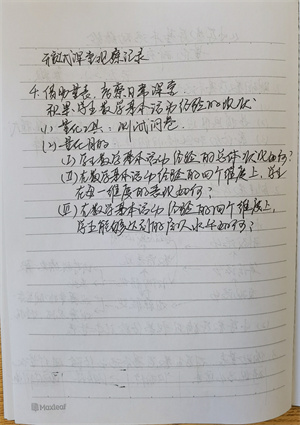 开放式课堂观察记录
4. 借助量表,考察日常课堂
效果:学生数学基本活动经验的状况
(1) 量化工具:测试问卷
(2) 量化目的
(Ⅰ) 学生数学基本活动经验的总体状况如何?
(Ⅱ) 在数学基本活动经验的四个维度上,学生
在每一维度的表现如何?
(Ⅲ) 在数学基本活动经验的四个维度上,
学生能够达到的层次水平如何?
Maxleaf